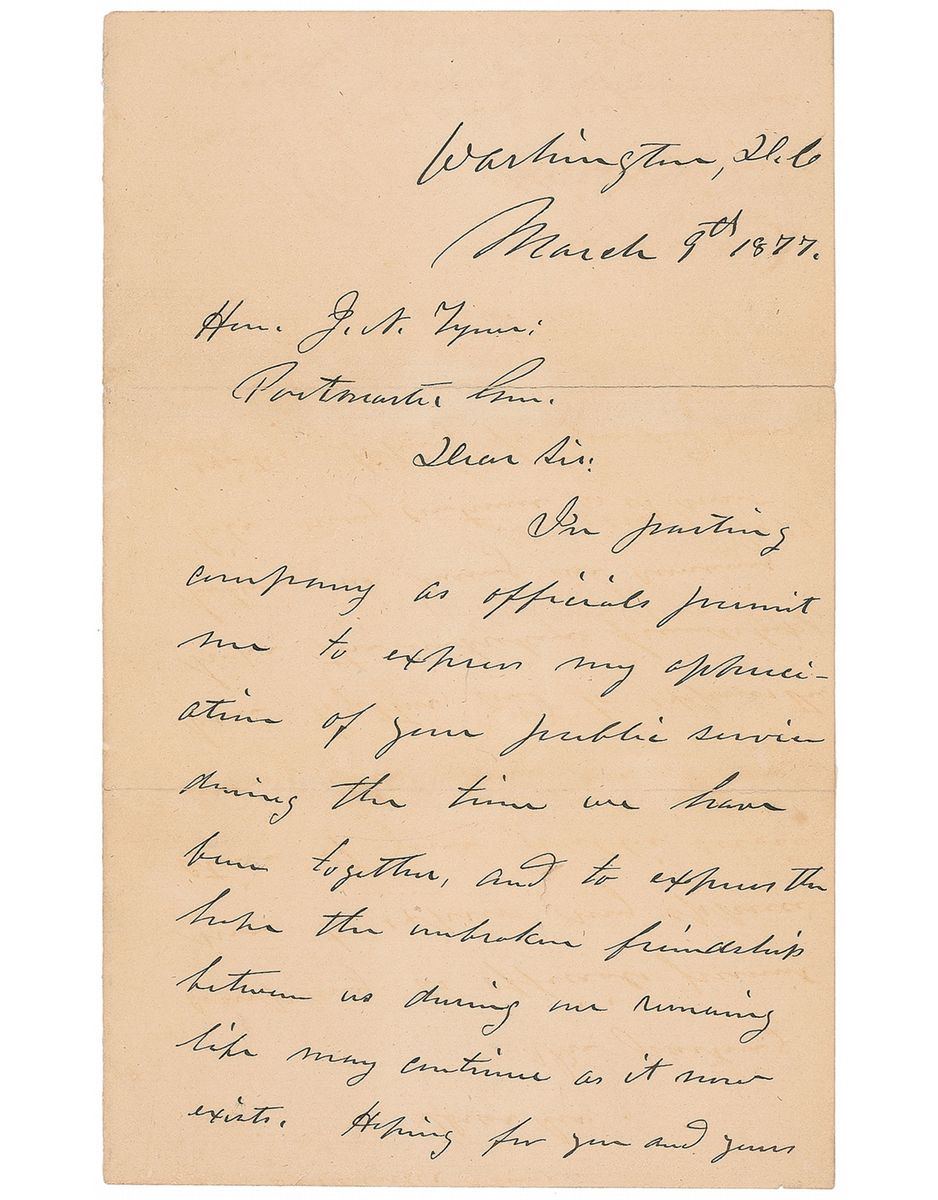 Washington, D.C.
March 9th 1877.
Hon. J. N. Tyner:
Postmaster Gen.
Dear Sir:
In parting
company as officials permit
me to express my appreci-
ation of your public service
during the time we have
been together, and to express the
hope the unbroken friendship
between us during our
life may continue as it now
exists. Hoping for you and yours